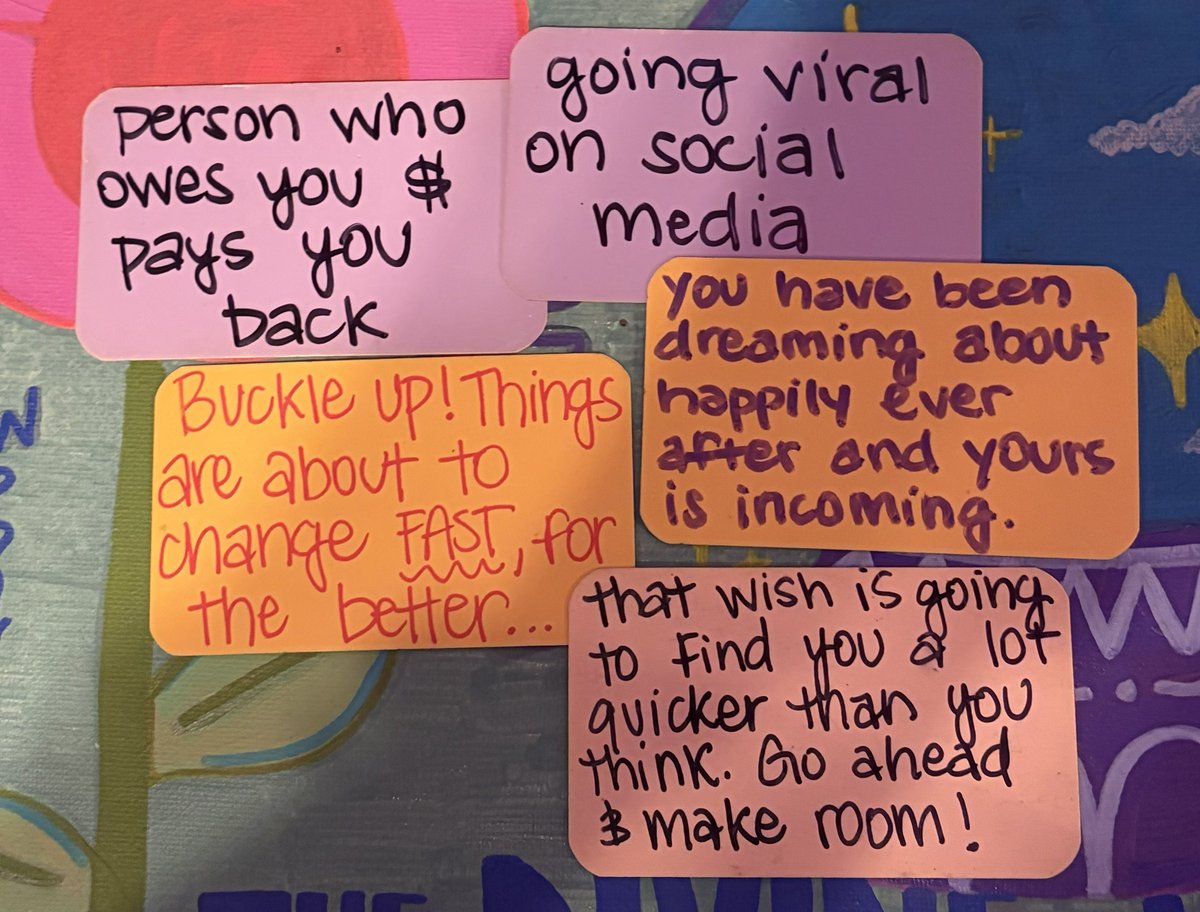 person who
owes you $
pays you
back
going viral
on social
media
you have been
dreaming about
happily ever
after and yours
is incoming.
Buckle up! Things
are about to
change FAST, for
the better...
that wish is going
to find you a lot
quicker than you
think. Go ahead
& make room!
THE DIVINE